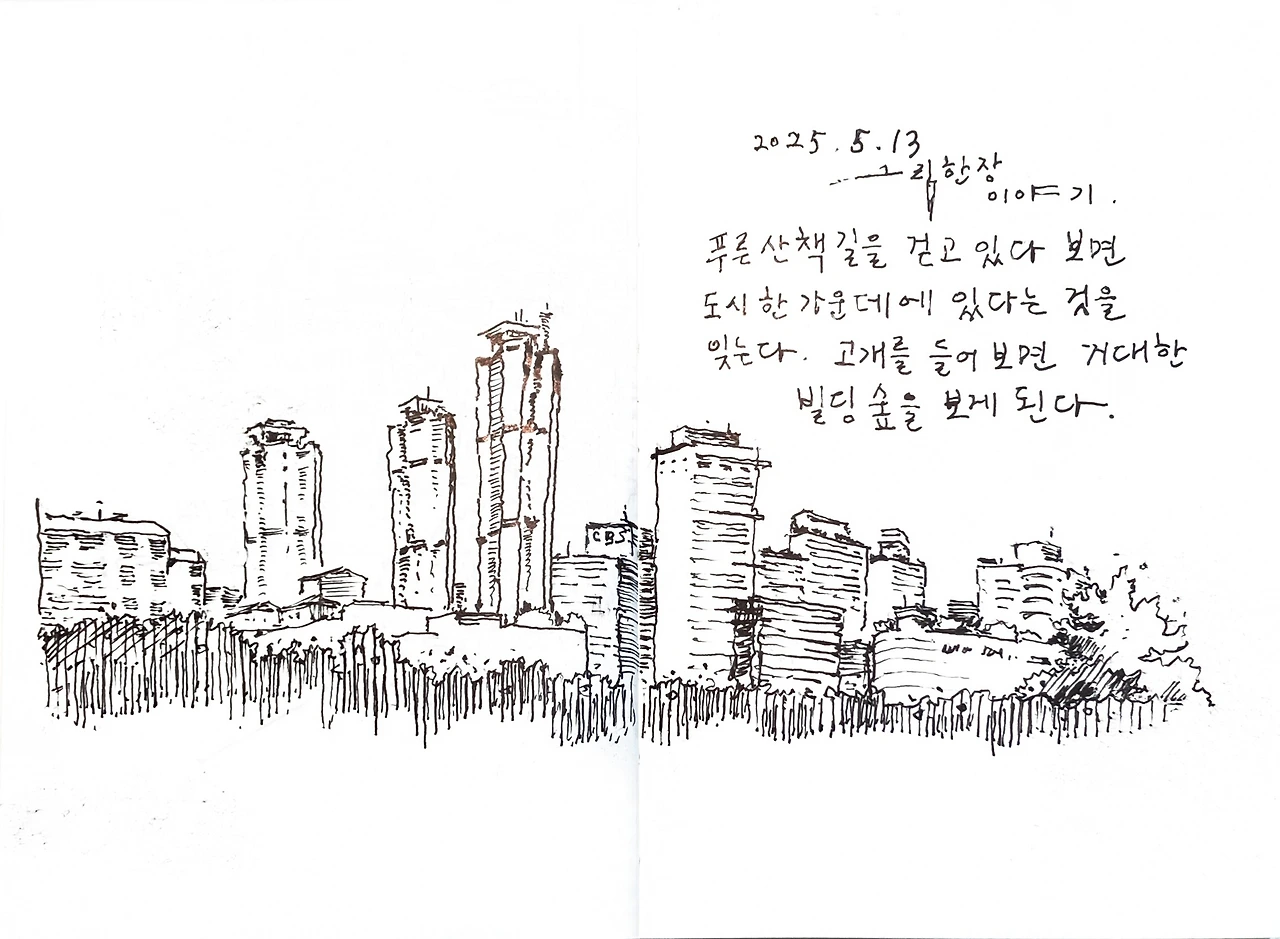 2025.5.13
그림한장
이야기.
푸른 산책길을 걷고 있다 보면
도시 한가운데에 있다는 것을
잊는다. 고개를 들어 보면 거대한
빌딩 숲을 보게 된다.
CBS